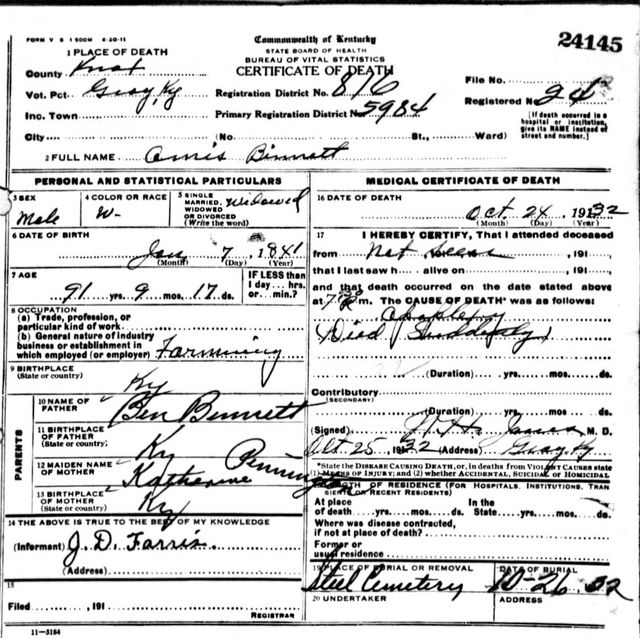 FORM V S 1 500M 6-20-11
Commonwealth of Kentucky
STATE BOARD OF HEALTH
BUREAU OF VITAL STATISTICS
CERTIFICATE OF DEATH
24145
1 PLACE OF DEATH
County Knox
Vot. Pct. Gray, Ky
Inc. Town
City
Registration District No. 816
Primary Registration District No. 5984
(No. St., Ward)
File No.
Registered No. 24
[If death occurred in a
hospital or institution,
give its NAME instead of
street and number.]
2 FULL NAME Amis Binnett
PERSONAL AND STATISTICAL PARTICULARS
3 SEX
Male
4 COLOR OR RACE
W-
5 SINGLE
MARRIED,
WIDOWED
OR DIVORCED
(Write the word)
Widowed
6 DATE OF BIRTH
Jan 7, 1841
(Month) (Day) (Year)
7 AGE
91 yrs. 9 mos. 17 ds.
IF LESS than
1 day... hrs.
or... min.?
8 OCCUPATION
(a) Trade, profession, or
particular kind of work
(b) General nature of industry
business or establishment in
which employed (or employer) Farming
9 BIRTHPLACE
(State or country)
Ky
PARENTS
10 NAME OF
FATHER
Ben Binnett
11 BIRTHPLACE
OF FATHER
(State or country)
Ky
12 MAIDEN NAME
OF MOTHER
Katherine
13 BIRTHPLACE
OF MOTHER
(State or country)
Ky
14 THE ABOVE IS TRUE TO THE BEST OF MY KNOWLEDGE
(Informant) J. D. Farris.
(Address)
15
Filed, 191
REGISTRAR
11-3184
MEDICAL CERTIFICATE OF DEATH
16 DATE OF DEATH
Oct. 24, 1932
(Month) (Day) (Year)
17 I HEREBY CERTIFY, That I attended deceased
from Not Seen, 191
that I last saw h alive on, 191
and that death occurred on the date stated above
at 7 30 m. The CAUSE OF DEATH* was as follows:
Apoplexy
(Died Suddenly)
(Duration) yrs. mos. ds.
Contributory
(SECONDARY)
(Duration) yrs. mos. ds.
(Signed) Jones M. D.
Oct. 25, 1932 (Address) Gray, Ky
*State the DISEASE CAUSING DEATH, or, in deaths from VIOLENT CAUSES state
(1) MEANS OF INJURY; and (2) whether ACCIDENTAL, SUICIDAL or HOMICIDAL
LENGTH OF RESIDENCE (FOR HOSPITALS, INSTITUTIONS, TRAN
SIENTS OR RECENT RESIDENTS)
At place
of death yrs. mos. ds.
In the
State yrs. mos. ds.
Where was disease contracted,
if not at place of death?
Former or
usual residence
19 PLACE OF BURIAL OR REMOVAL
Steel Cemetery
DATE OF BURIAL
10-26, 32
20 UNDERTAKER
ADDRESS